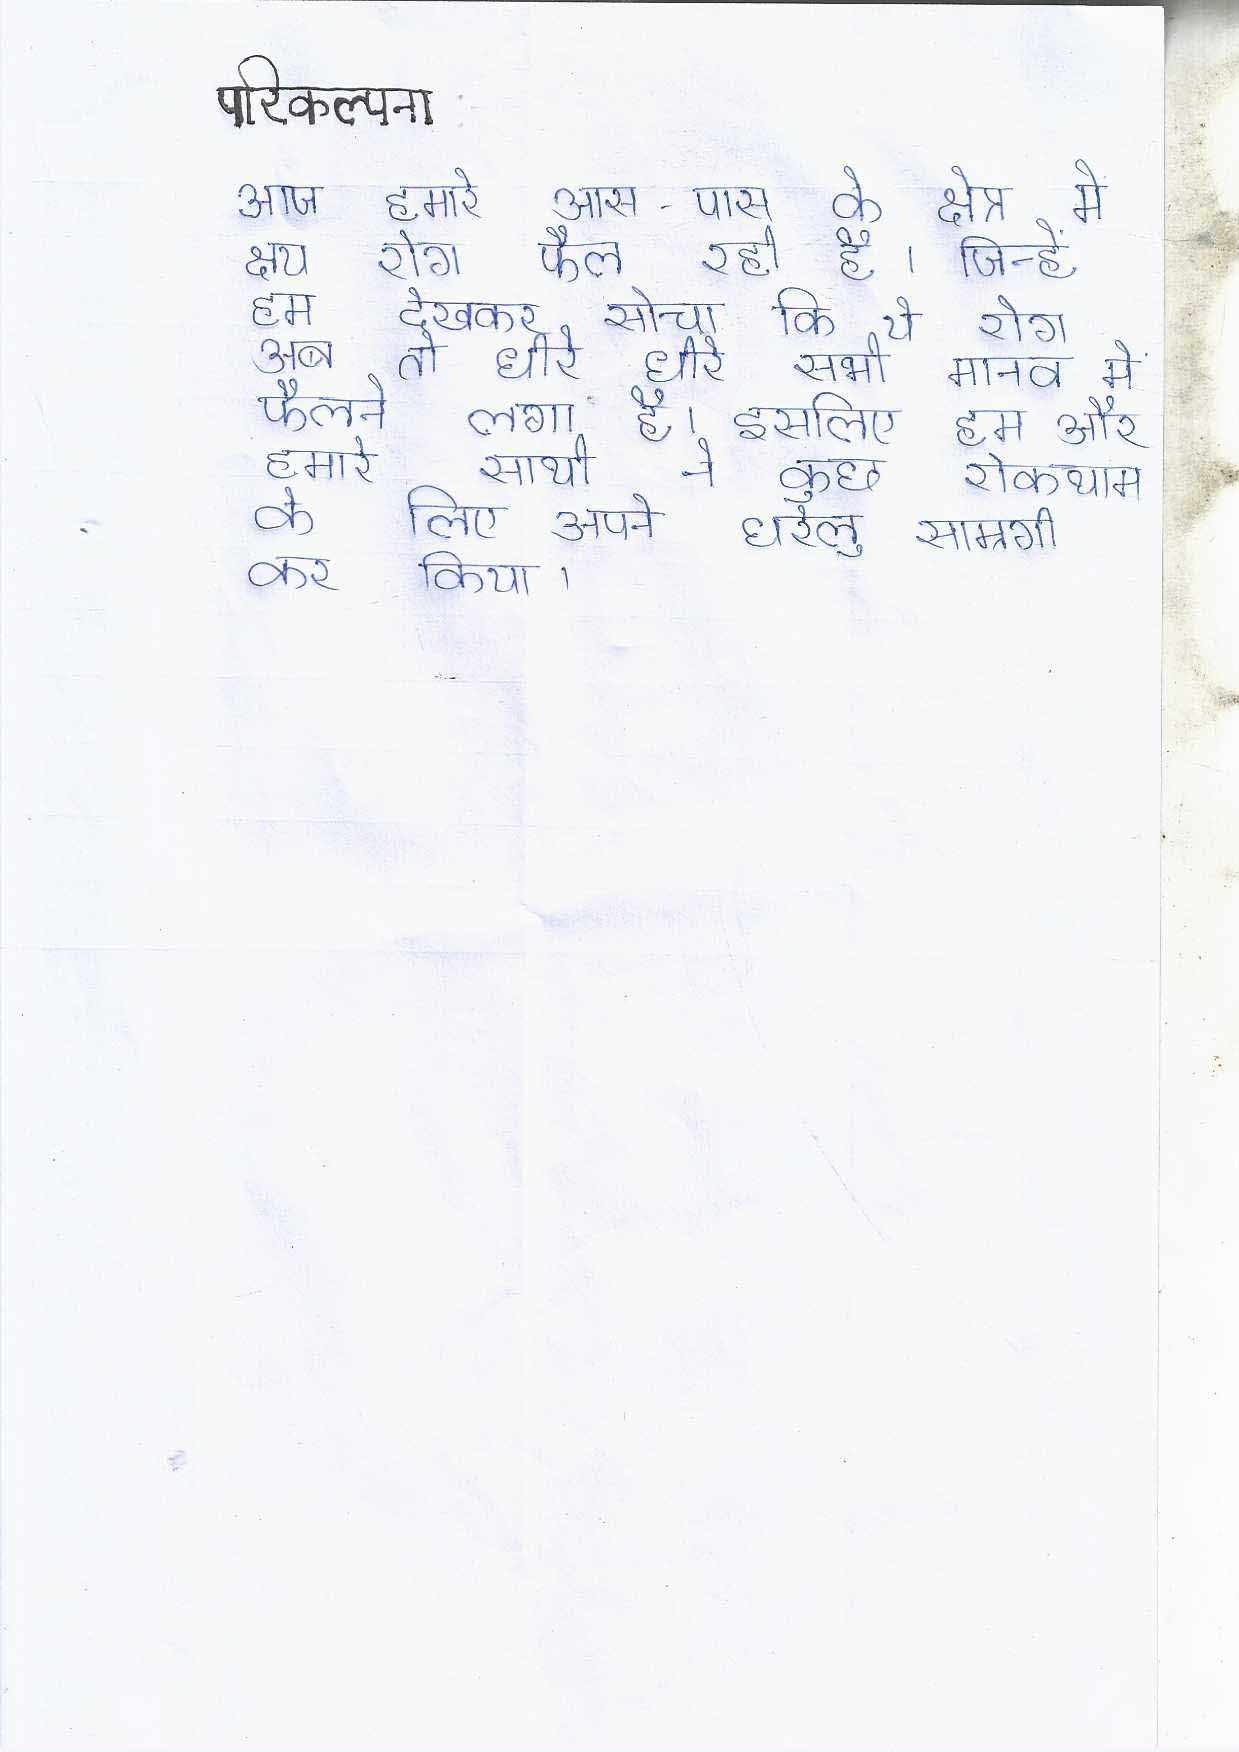 परिकल्पना
आज हमारे आस-पास के क्षेत्र मे
क्षय रोग फैल रही हैं। जिन्हें
हम देखकर सोचा कि ये रोग
अब तो धीरे धीरे सभी मानव में
फैलने लगा है। इसलिए हम और
हमारे साथी ने कुछ रोकथाम
के लिए अपने घरेलु सामग्री
कर किया।